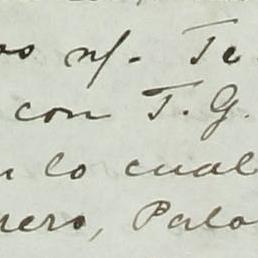 os nf. Te
con T. G.
n lo cual
nero, Palo